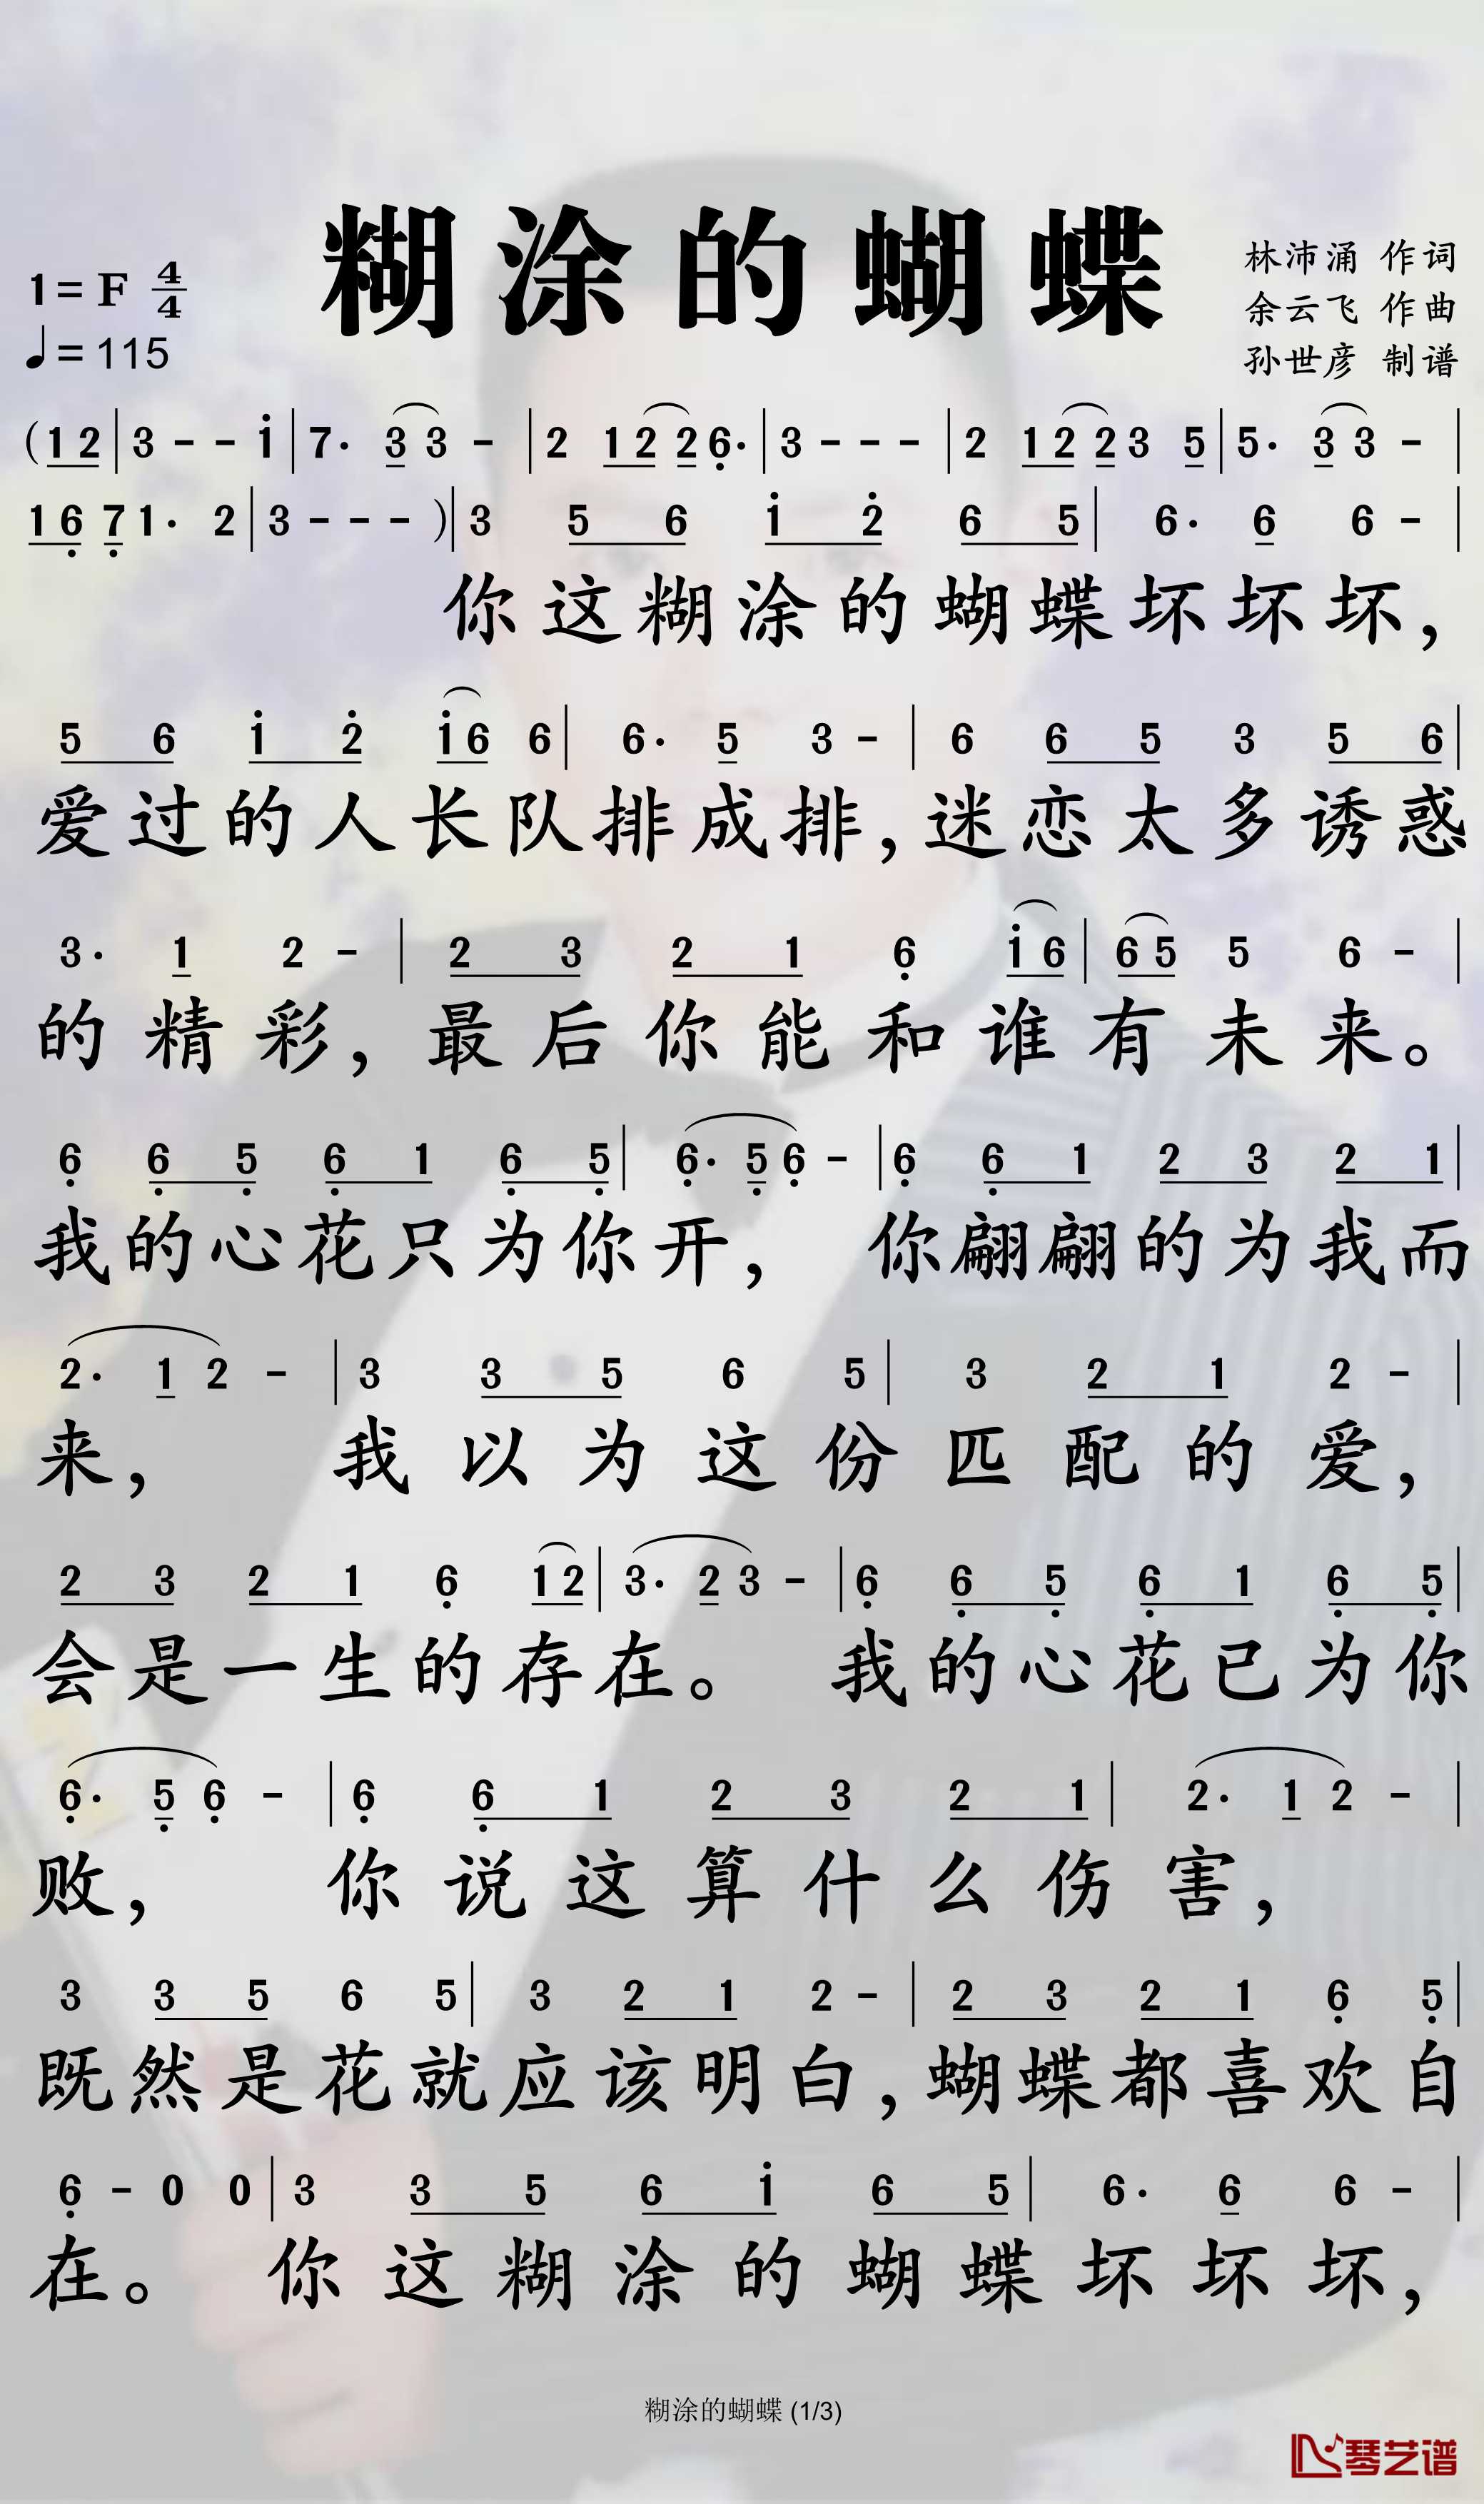 糊涂的蝴蝶
1=F 4/4
♩=115
林沛涌 作词
余云飞 作曲
孙世彦 制谱
(1 2 | 3 - - i | 7· 3 3 - | 2 1 2 2 6̣· | 3 - - - | 2 1 2 2 3 5 | 5· 3 3 - |
1 6̣ 7̣ 1· 2 | 3 - - - ) | 3 5 6 1̇ 2̇ 6 5 | 6· 6 6 - |
你这糊涂的蝴蝶坏坏坏，
5 6 1̇ 2̇ 1̇ 6 6 | 6· 5 3 - | 6 6 5 3 5 6 |
爱过的人长队排成排，迷恋太多诱惑
3· 1 2 - | 2 3 2 1 6̣ 1̇ 6 | 6 5 5 6 - |
的精彩，最后你能和谁有未来。
6̣ 6̣ 5̣ 6̣ 1 6̣ 5̣ | 6̣· 5̣ 6̣ - | 6̣ 6̣ 1 2 3 2 1 |
我的心花只为你开，你翩翩的为我而
2· 1 2 - | 3 3 5 6 5 | 3 2 1 2 - |
来，我以为这份匹配的爱，
2 3 2 1 6̣ 1 2 | 3· 2 3 - | 6̣ 6̣ 5̣ 6̣ 1 6̣ 5̣ |
会是一生的存在。我的心花已为你
6̣· 5̣ 6̣ - | 6̣ 6̣ 1 2 3 2 1 | 2· 1 2 - |
败，你说这算什么伤害，
3 3 5 6 5 | 3 2 1 2 - | 2 3 2 1 6̣ 5̣ |
既然是花就应该明白，蝴蝶都喜欢自
6̣ - 0 0 | 3 3 5 6 1̇ 6 5 | 6· 6 6 - |
在。你这糊涂的蝴蝶坏坏坏，
糊涂的蝴蝶 (1/3)
琴艺谱